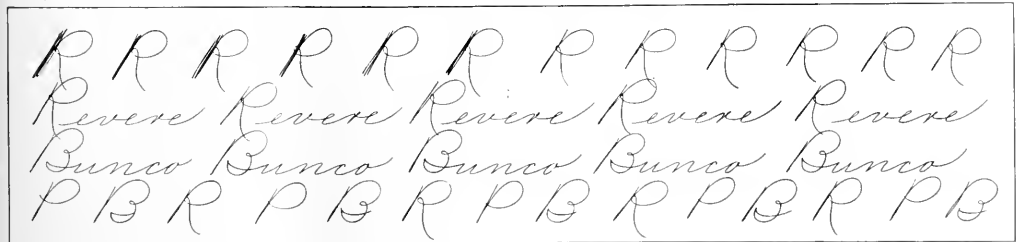 R R R R R R R R R R R R
Revere Revere Revere Revere Revere
Bunco Bunco Bunco Bunco Bunco
P B R P B R P B R P B R P B